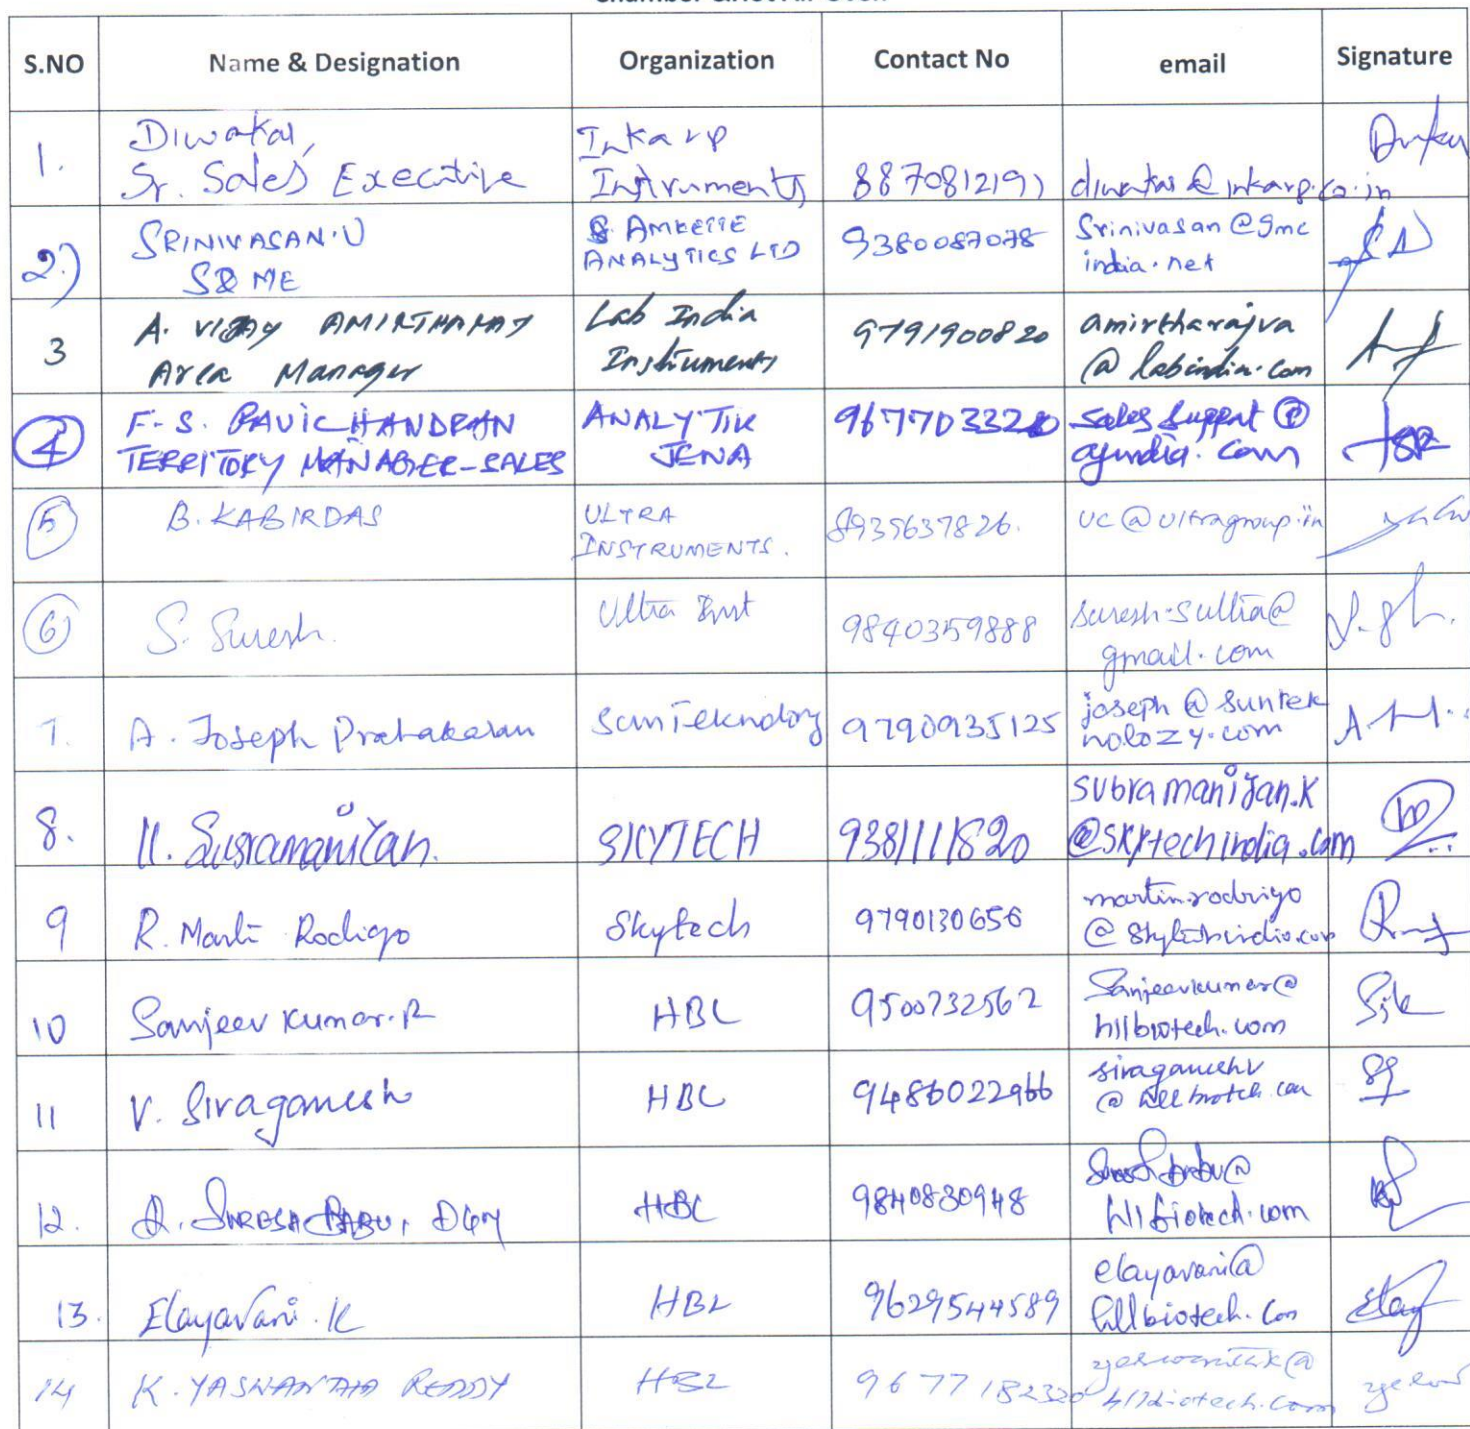 S.NO Name & Designation Organization Contact No email Signature
1. Diwakar, Inkarp
Sr. Sales Executive Instruments 8870812191 diwakar@inkarp.co.in
2.) SRINIVASAN.U AMKETTE 9380087078 Srinivasan@gmc
S&ME ANALYTICS LTD india.net
3 A. VIJAY AMIRTHARAJ Lab India 9791900820 amirtharajva
Area Manager Instruments @labindia.com
4 F.S. RAVICHANDRAN ANALYTIK 9677703320 sales support@
TERRITORY MANAGER-SALES JENA ajindia.com
5 B. KABIRDAS ULTRA 8939637826. uc@ultragroup.in
INSTRUMENTS.
6 S. Suresh. Ultra Inst 9840359888 suresh.sultra@
gmail.com
7. A. Joseph Prabakaran SunTeknology 9790935125 joseph@suntek
nolozy.com
8. K. Subramaniyan. SKYTECH 9381111820 subramaniyan.K
@skytechindia.com
9 R. Martin Rodrigo Skytech 9790130656 martin.rodrigo
@skytechindia.com
10 Sanjeev Kumar.R HBL 9500732562 Sanjeevkumar@
hllbiotech.com
11 V. Sivaganesh HBL 9486022966 sivaganeshv
@hllbiotech.com
12. R. SURESH BABU, DGM HBL 9840830948 Sureshbabu@
hllbiotech.com
13. Elayavani.K HBL 9629544589 elayavani@
hllbiotech.com
14 K. YASHWANTHA REDDY HBL 9677182320 yashwanthk@
hllbiotech.com